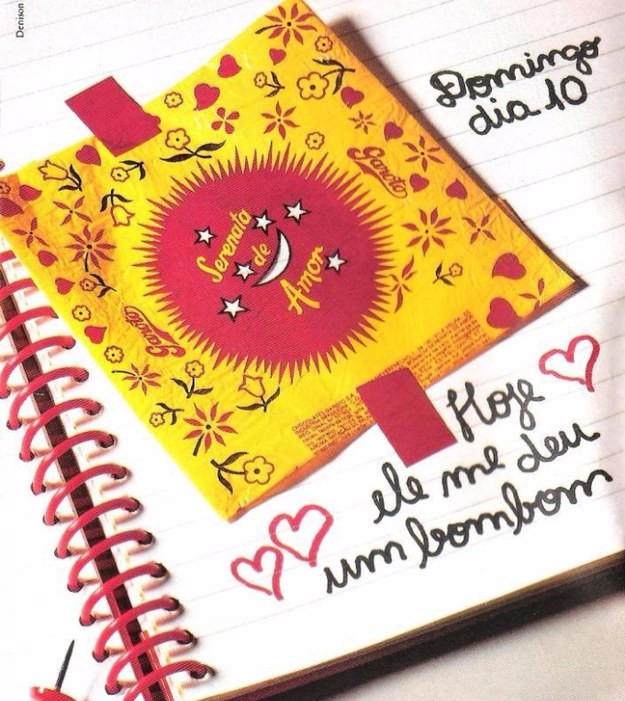 Denison
Domingo
dia 10
Garoto
Serenata
de
Amor
Garoto
Hoje
ele me deu
um bombom